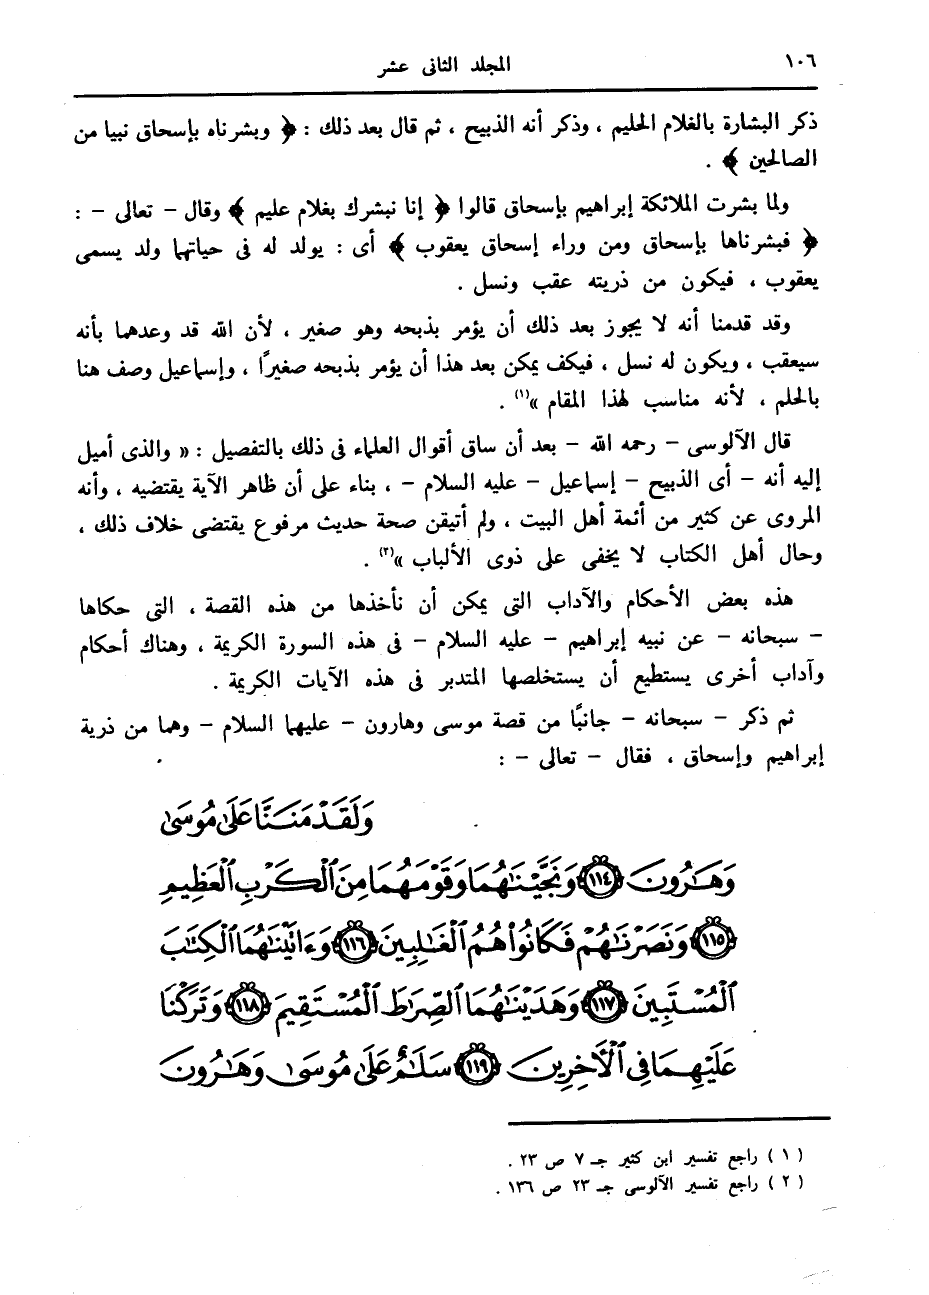 ١٠٦
المجلد الثانى عشر
ذكر البشارة بالغلام الحليم ، وذكر أنه الذبيح ، ثم قال بعد ذلك : ﴿ وبشرناه بإسحاق نبيا من
الصالحين ﴾ .
ولما بشرت الملائكة إبراهيم بإسحاق قالوا ﴿ إنا نبشرك بغلام عليم ﴾ وقال – تعالى – :
﴿ فبشرناها بإسحاق ومن وراء إسحاق يعقوب ﴾ أى : يولد له فى حياتهما ولد يسمى
يعقوب ، فيكون من ذريته عقب ونسل .
وقد قدمنا أنه لا يجوز بعد ذلك أن يؤمر بذبحه وهو صغير ، لأن الله قد وعدهما بأنه
سيعقب ، ويكون له نسل ، فيكف يمكن بعد هذا أن يؤمر بذبحه صغيرًا ، وإسماعيل وصف هنا
بالحلم ، لأنه مناسب لهذا المقام »(١) .
قال الآلوسى – رحمه الله – بعد أن ساق أقوال العلماء فى ذلك بالتفصيل : « والذى أميل
إليه أنه – أى الذبيح – إسماعيل – عليه السلام – ، بناء على أن ظاهر الآية يقتضيه ، وأنه
المروى عن كثير من أئمة أهل البيت ، ولم أتيقن صحة حديث مرفوع يقتضى خلاف ذلك ،
وحال أهل الكتاب لا يخفى على ذوى الألباب »(٢) .
هذه بعض الأحكام والآداب التى يمكن أن نأخذها من هذه القصة ، التى حكاها
– سبحانه – عن نبيه إبراهيم – عليه السلام – فى هذه السورة الكريمة ، وهناك أحكام
وآداب أخرى يستطيع أن يستخلصها المتدبر فى هذه الآيات الكريمة .
ثم ذكر – سبحانه – جانبًا من قصة موسى وهارون – عليهما السلام – وهما من ذرية
إبراهيم وإسحاق ، فقال – تعالى – :
وَلَقَدْ مَنَنَّا عَلَىٰ مُوسَىٰ
وَهَـٰرُونَ ١١٤ وَنَجَّيْنَـٰهُمَا وَقَوْمَهُمَا مِنَ ٱلْكَرْبِ ٱلْعَظِيمِ
١١٥ وَنَصَرْنَـٰهُمْ فَكَانُوا۟ هُمُ ٱلْغَـٰلِبِينَ ١١٦ وَءَاتَيْنَـٰهُمَا ٱلْكِتَـٰبَ
ٱلْمُسْتَبِينَ ١١٧ وَهَدَيْنَـٰهُمَا ٱلصِّرَٰطَ ٱلْمُسْتَقِيمَ ١١٨ وَتَرَكْنَا
عَلَيْهِمَا فِى ٱلْـَٔاخِرِينَ ١١٩ سَلَـٰمٌ عَلَىٰ مُوسَىٰ وَهَـٰرُونَ
( ١ ) راجع تفسير ابن كثير جـ ٧ ص ٢٣ .
( ٢ ) راجع تفسير الآلوسى جـ ٢٣ ص ١٣٦ .